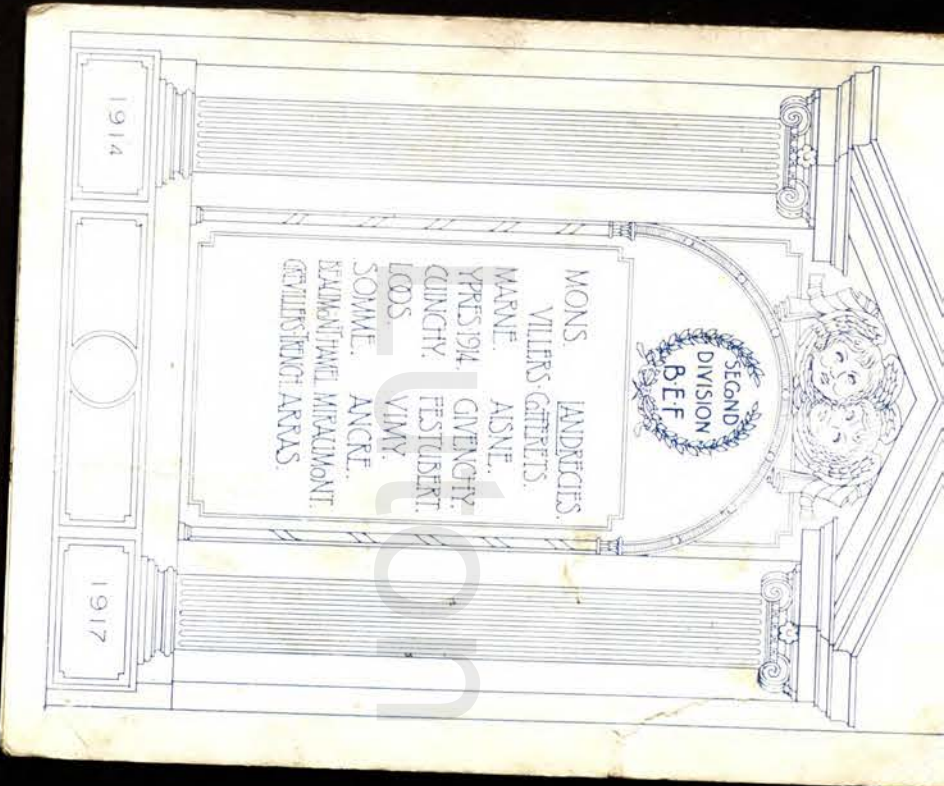 SECOND
DIVISION
B·E·F
MONS. LANDRECIES.
VILLERS-COTTERETS.
MARNE. AISNE.
YPRES 1914. GIVENCHY.
CUINCHY. FESTUBERT.
LOOS. VIMY.
SOMME. ANCRE.
BEAUMONT HAMEL. MIRAUMONT.
GREVILLERS TRENCH. ARRAS.
1914
1917